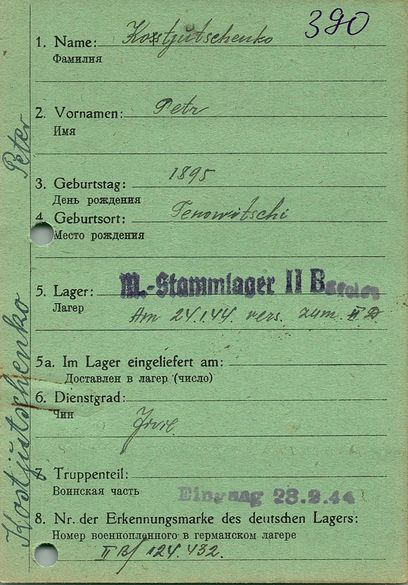 390
1. Name: Kostjutschenko
Фамилия
2. Vornamen: Petr
Имя
3. Geburtstag: 1895
День рождения
4. Geburtsort: Tenowitschi
Место рождения
5. Lager: M.-Stammlager II B
Лагер
Am 24.1.44 vers. zum II D
5a. Im Lager eingeliefert am:
Доставлен в лагер (число)
6. Dienstgrad:
Чин
Zivil.
7. Truppenteil:
Воинская часть
Eingang 28.2.44
8. Nr. der Erkennungsmarke des deutschen Lagers:
Номер военнопленного в германском лагере
II B/ 124.432.
Kostjutschenko Peter